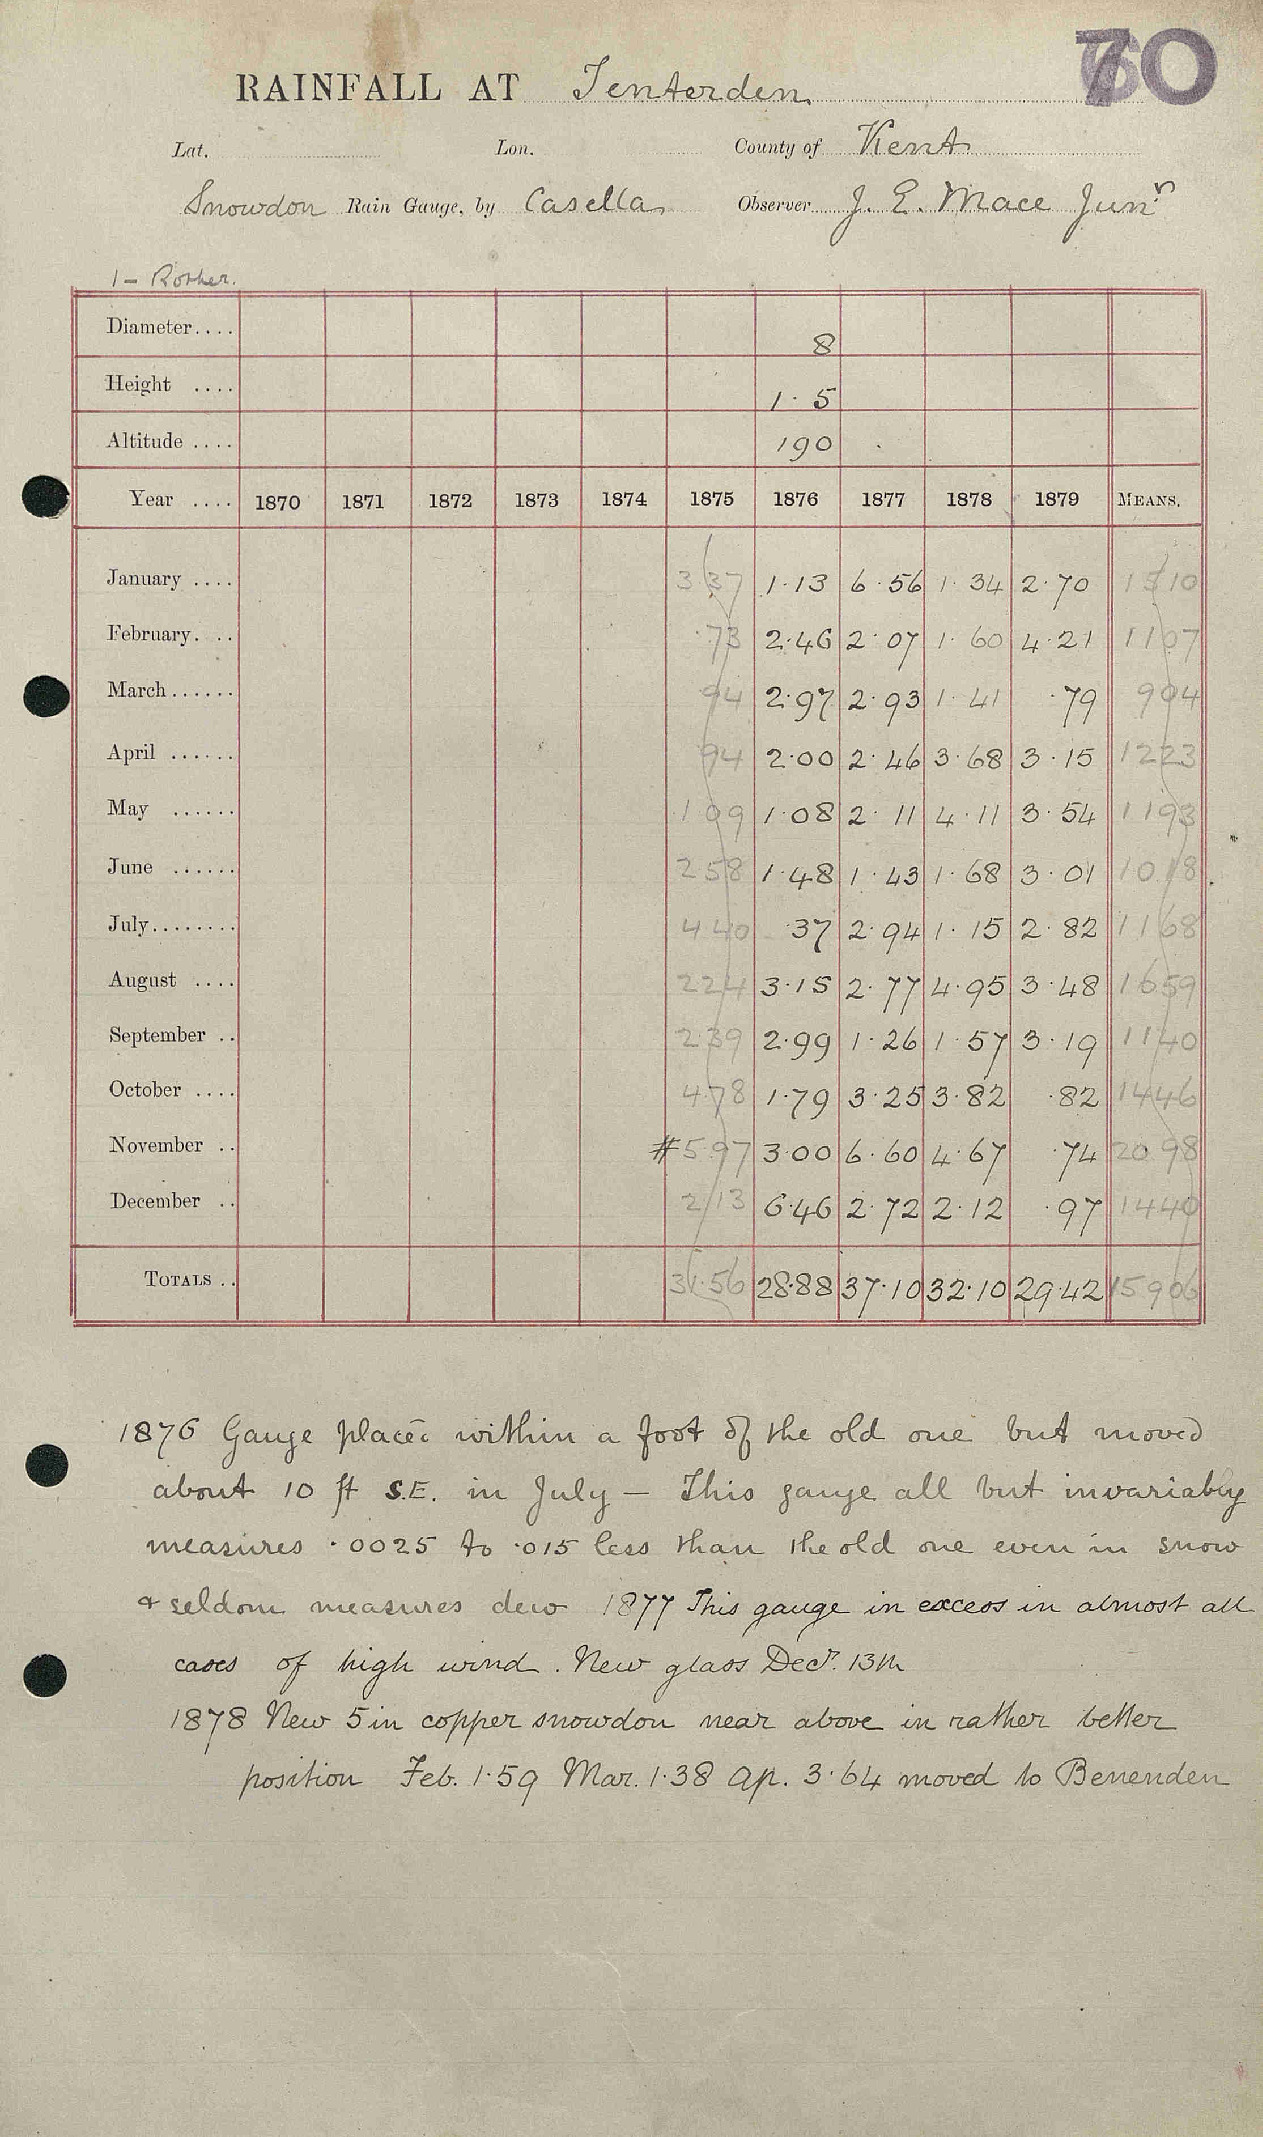 70
RAINFALL AT Tenterden
Lat. Lon. County of Kent
Snowdon Rain Gauge, by Casella Observer J. E. Mace Junr.
1 - Rother.
Diameter.... 8
Height .... 1.5
Altitude .... 190
Year .... 1870 1871 1872 1873 1874 1875 1876 1877 1878 1879 MEANS.
January .... 3 37 1.13 6.56 1.34 2.70 15 10
February. .. .73 2.46 2.07 1.60 4.21 11 07
March...... 94 2.97 2.93 1.41 .79 9 04
April ...... 94 2.00 2.46 3.68 3.15 12 23
May ...... 1 09 1.08 2.11 4.11 3.54 11 93
June ...... 2 58 1.48 1.43 1.68 3.01 10 18
July........ 4 40 .37 2.94 1.15 2.82 11 68
August .... 2 24 3.15 2.77 4.95 3.48 16 59
September .. 2 39 2.99 1.26 1.57 3.19 11 40
October .... 4.78 1.79 3.25 3.82 .82 14 46
November .. #5.97 3.00 6.60 4.67 .74 20 98
December .. 2 13 6.46 2.72 2.12 .97 14 40
TOTALS .. 31.56 28.88 37.10 32.10 29.42 159 06
1876 Gauge placed within a foot of the old one but moved
about 10 ft S.E. in July — This gauge all but invariably
measures .0025 to .015 less than the old one even in snow
& seldom measures dew 1877 This gauge in excess in almost all
cases of high wind. New glass Decr. 13th
1878 New 5in copper snowdon near above in rather better
position Feb. 1.59 Mar. 1.38 Ap. 3.64 moved to Benenden